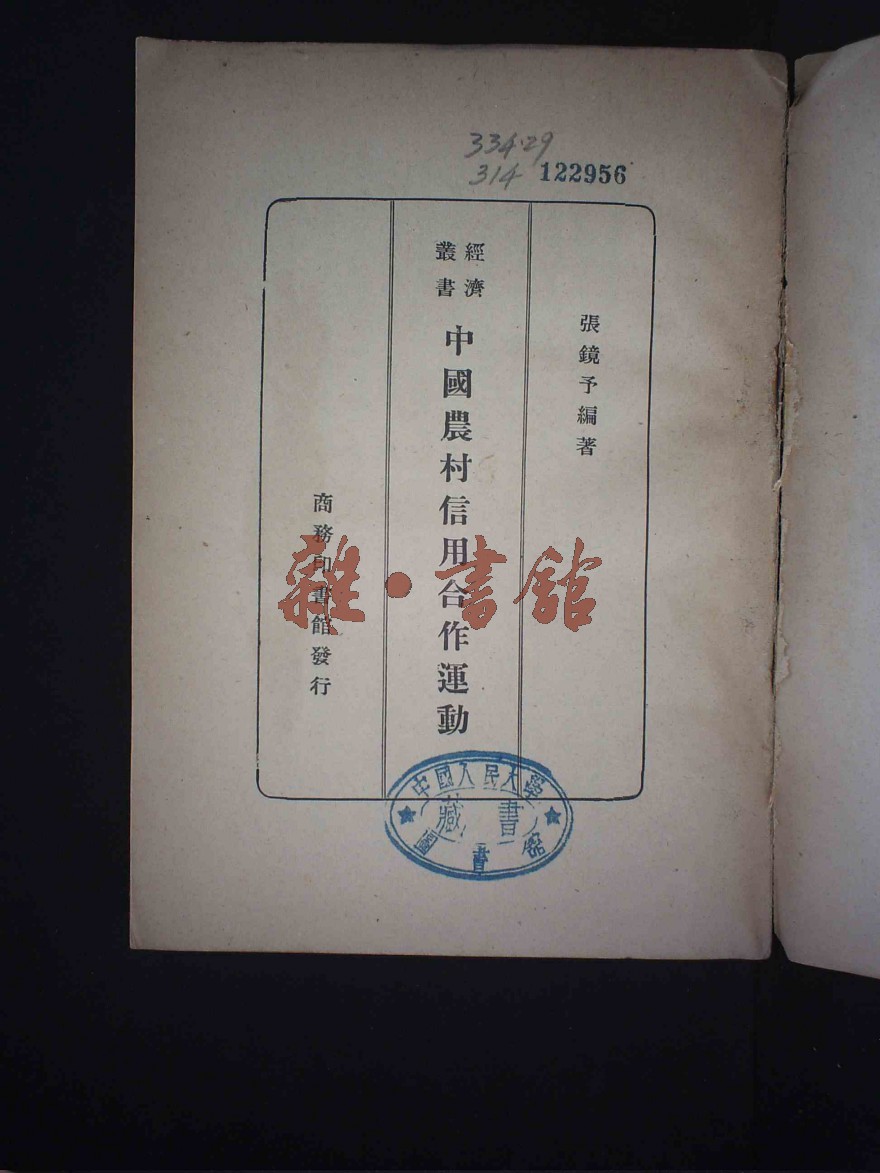 334·29
314 122956
張鏡予編著
經濟
叢書
中國農村信用合作運動
商務印書館發行
雜·書館
中國人民大學
藏書
圖書館